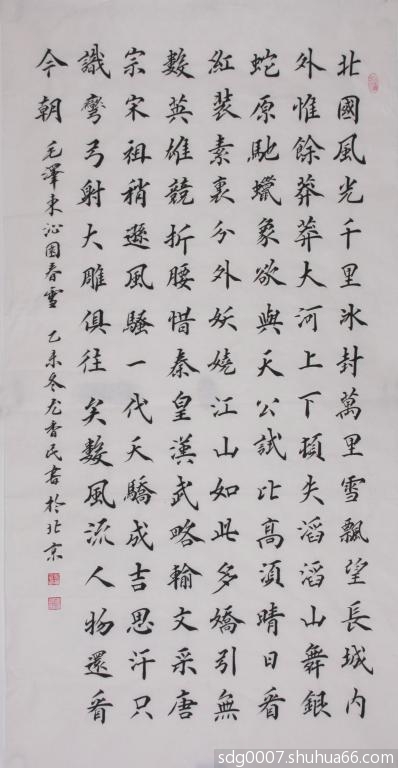 北國風光千里冰封萬里雪飄望長城内
外惟餘莽莽大河上下頓失滔滔山舞銀
蛇原馳蠟象欲與天公試比高須晴日看
紅裝素裹分外妖嬈江山如此多嬌引無
數英雄競折腰惜秦皇漢武略輸文采唐
宗宋祖稍遜風騷一代天驕成吉思汗只
識彎弓射大雕俱往矣數風流人物還看
今朝 毛澤東沁園春雪 乙未冬尤香民書於北京
sdg0007.shuhua66.com